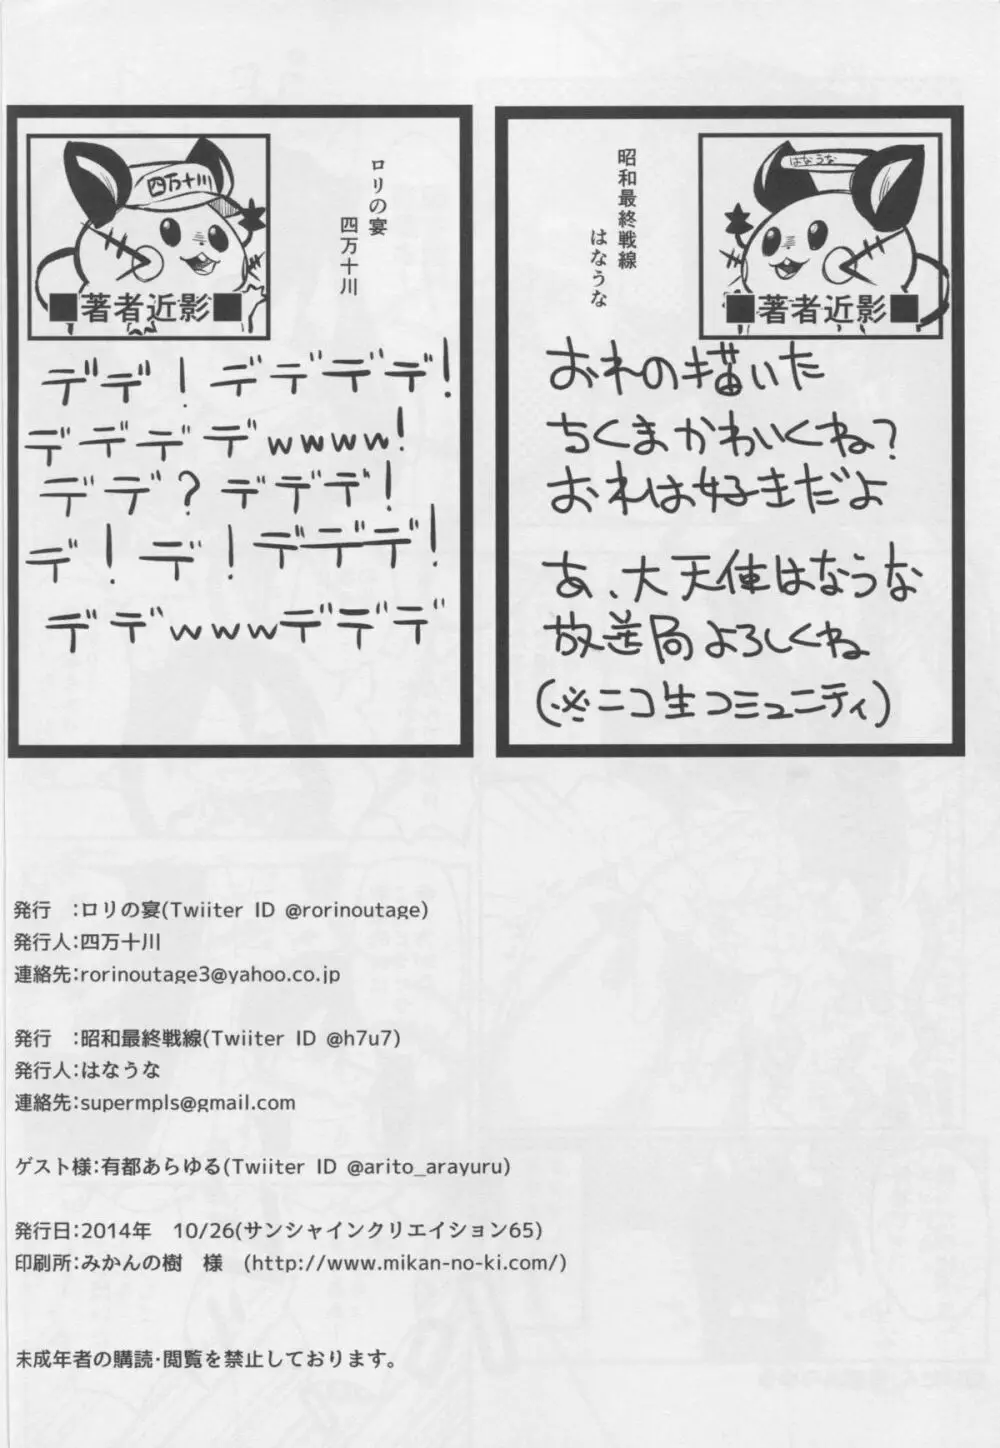 昭和最終戦線
はなうな
はなうな
■著者近影■
おれの描いた
ちくまかわいくね?
おれは好きだよ
あ、大天使はなうな
放送局よろしくね
(※ニコ生コミュニティ)
ロリの宴
四万十川
四万十川
■著者近影■
デデ!デデデデ!
デデデデwwww!
デデ?デデデ!
デ!デ!デデデ!
デデwwwデデデ
発行 :ロリの宴(Twiiter ID @rorinoutage)
発行人:四万十川
連絡先:rorinoutage3@yahoo.co.jp
発行 :昭和最終戦線(Twiiter ID @h7u7)
発行人:はなうな
連絡先:supermpls@gmail.com
ゲスト様:有都あらゆる(Twiiter ID @arito_arayuru)
発行日:2014年 10/26(サンシャインクリエイション65)
印刷所:みかんの樹 様 (http://www.mikan-no-ki.com/)
未成年者の購読・閲覧を禁止しております。